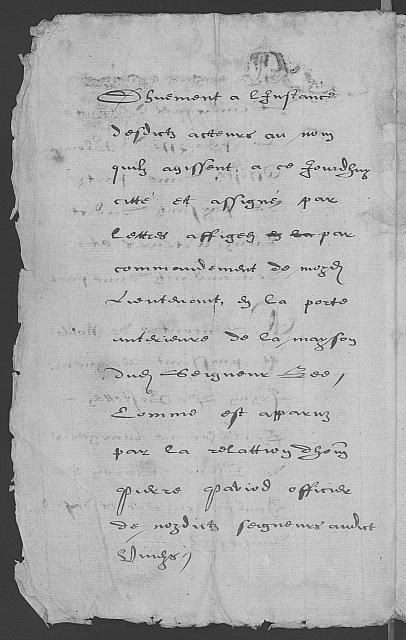 Dhuement a linstance
desdictz acteurs au nom
quilz agissent, a ce jourdhuy
citté et assigné par
lettres affigees en la par
commandement de mond
Lieutenant, en la porte
anterieure de la mayson
dud Seigneur
Comme est apparu
par la relattion dhon
Pierre Pariod officier
de nozdictz seigneurs audict